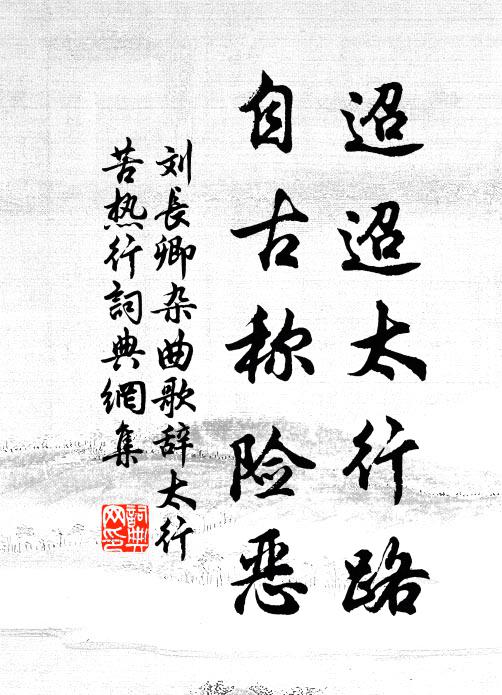 迢迢太行路
自古称险恶
刘長卿杂曲歌辞太行
苦热行詞典網集
詞典
网印